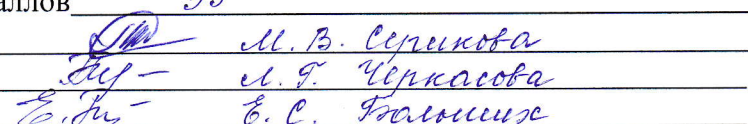 аллов 95
М. В. Сурикова
Л. Г. Черкасова
Е. С. Больших